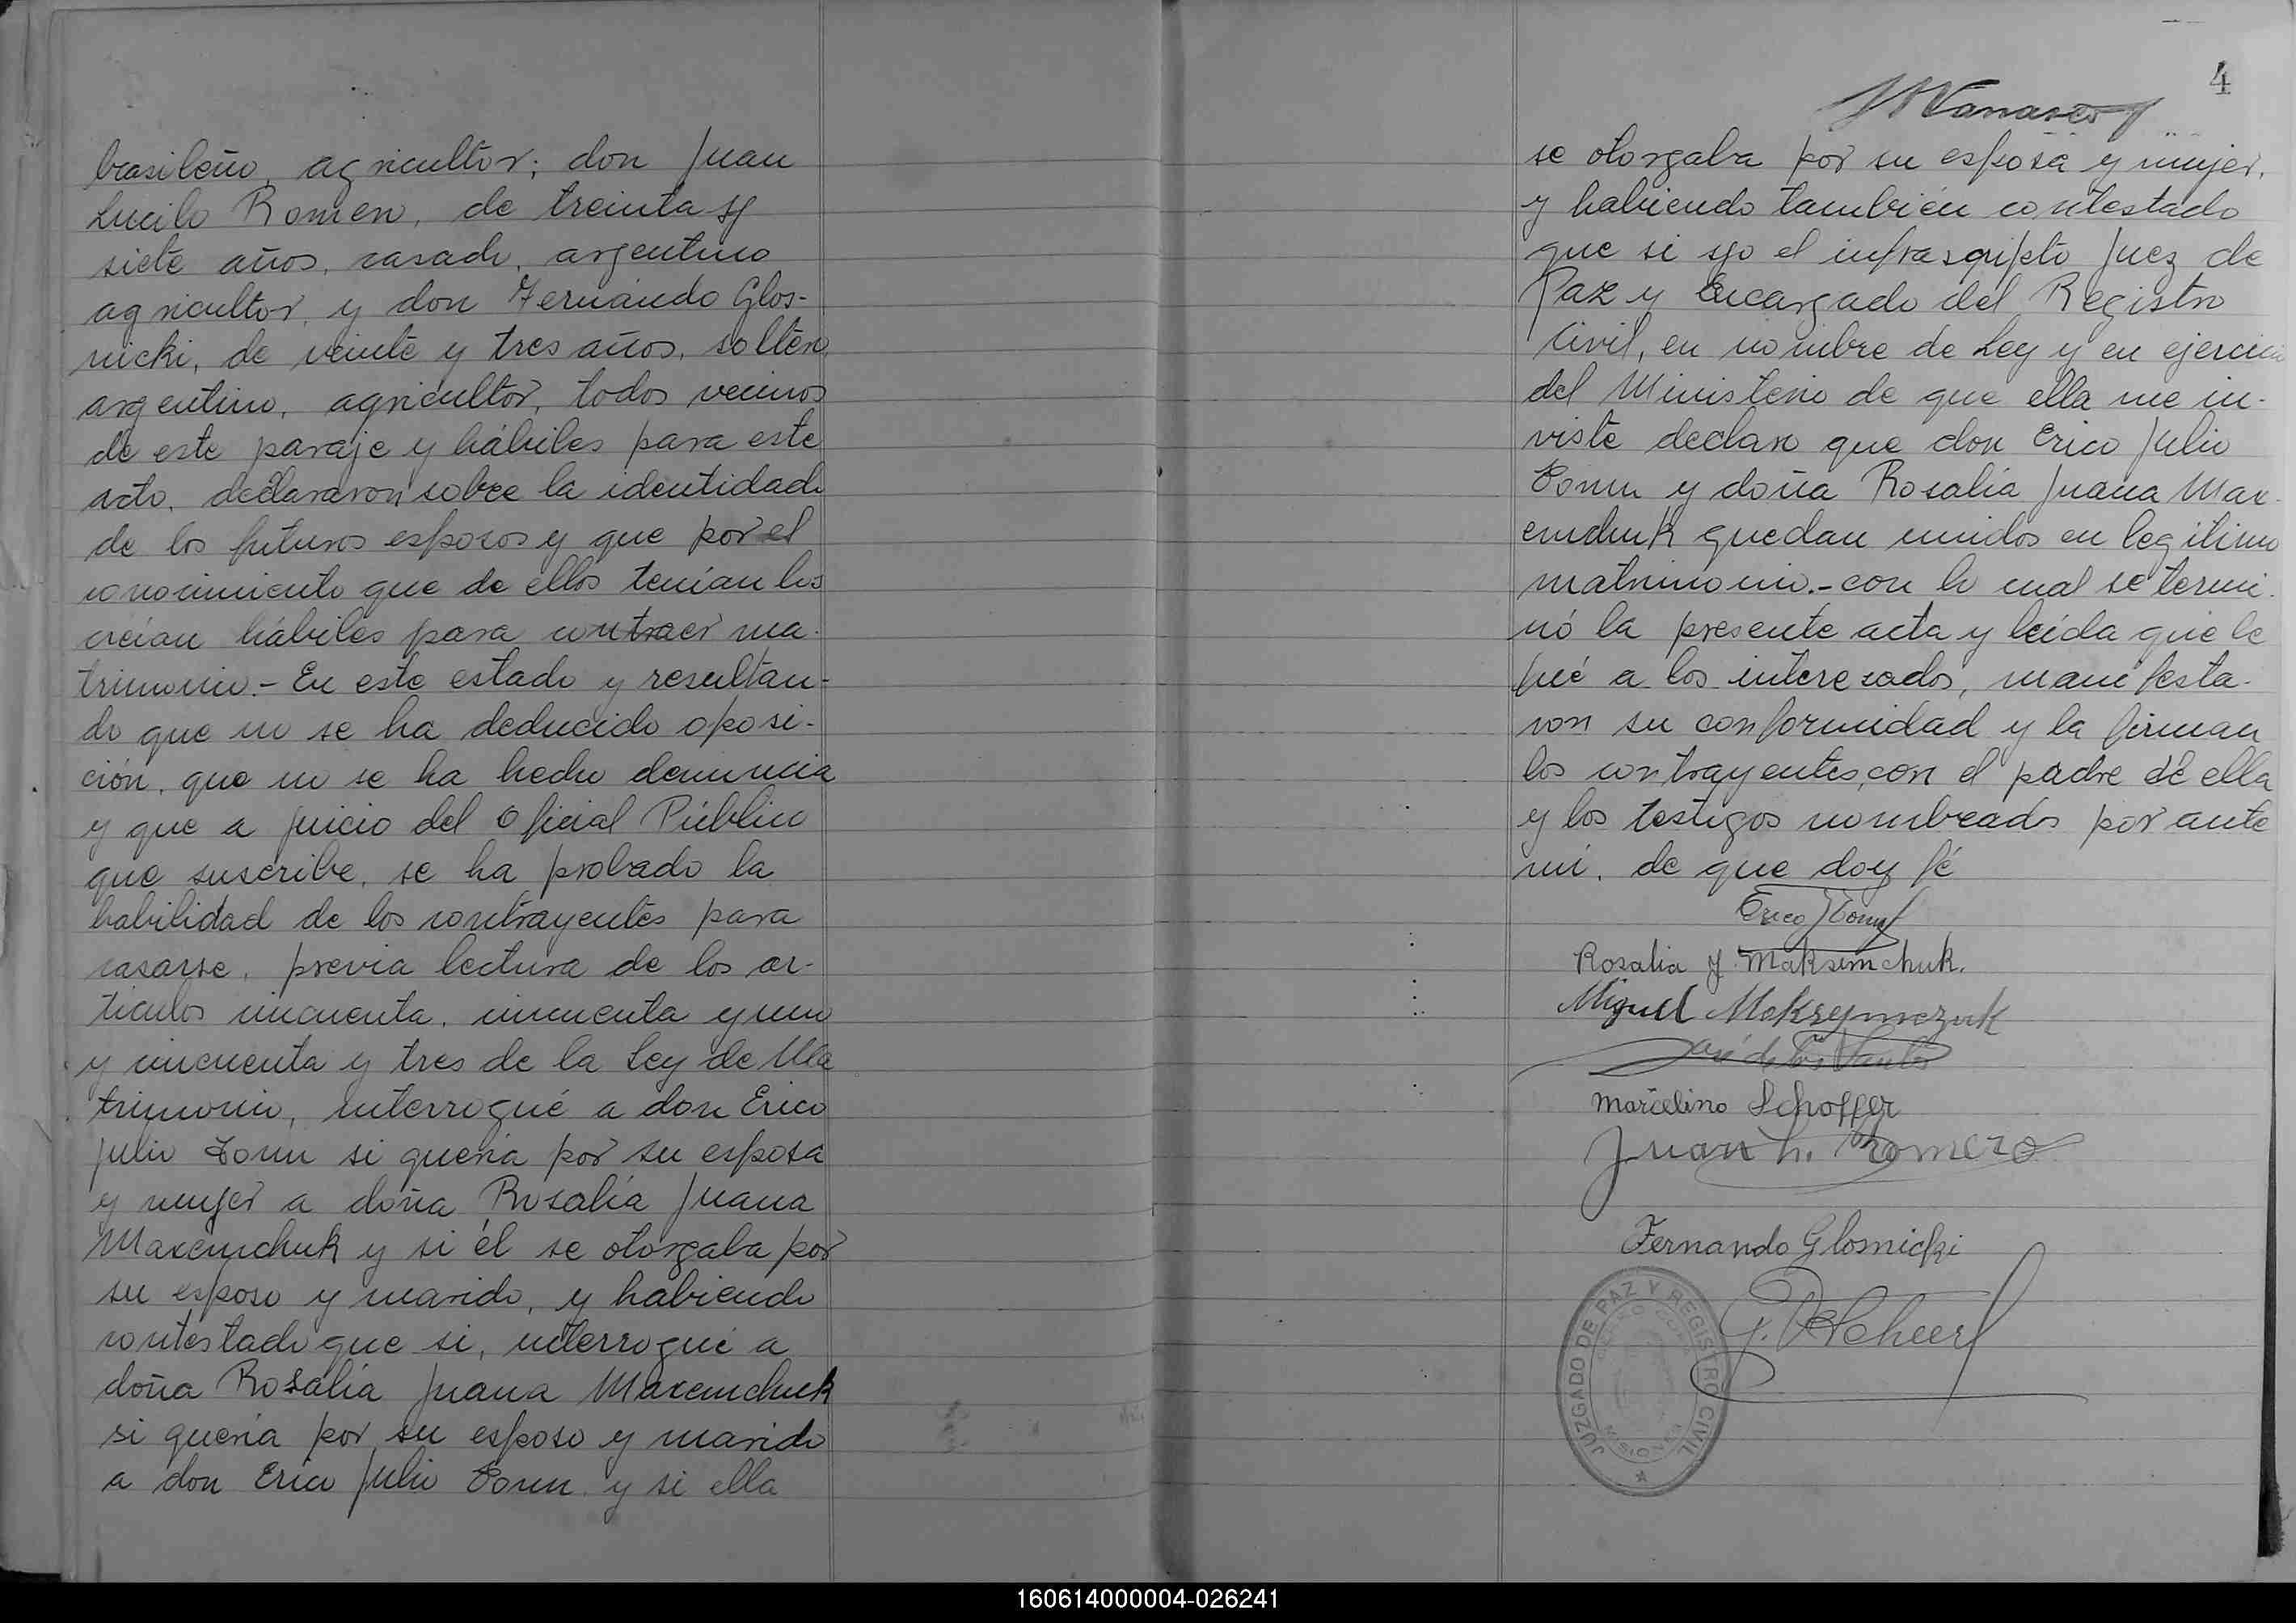 brasileño, agricultor; don Juan
Lucilo Romero, de treinta y
siete años, casado, argentino
agricultor, y don Fernando Glos-
nicki, de veinte y tres años, soltero,
argentino, agricultor, todos vecinos
de este paraje y hábiles para este
acto, declararon sobre la identidad
de los futuros esposos y que por el
conocimiento que de ellos tenían los
creían hábiles para contraer ma-
trimonio.- En este estado y resultan-
do que no se ha deducido oposi-
ción, que no se ha hecho denuncia
y que a juicio del Oficial Público
que suscribe, se ha probado la
habilidad de los contrayentes para
casarse, previa lectura de los ar-
tículos cincuenta, cincuenta y uno
y cincuenta y tres de la Ley de Ma
trimonio, interrogué a don Erico
Julio Tonn si quería por su esposa
y mujer a doña Rosalía Juana
Maxemchuk y si él se otorgaba por
su esposo y marido, y habiendo
contestado que si, interrogué a
doña Rosalía Juana Maxemchuk
si quería por su esposo y marido
a don Erico Julio Tonn y si ella
4
se otorgaba por su esposa y mujer,
y habiendo también contestado
que si yo el infrascripto Juez de
Paz y Encargado del Registro
Civil, en nombre de Ley y en ejercicio
del Ministerio de que ella me in-
viste declaro que don Erico Julio
Tonn y doña Rosalía Juana Max-
emchuk quedan unidos en legítimo
matrimonio.- con lo cual se termi-
nó la presente acta y leída que le
fué a los interesados, manifesta-
ron su conformidad y la firman
los contrayentes, con el padre de ella
y los testigos nombrados por ante
mí, de que doy fé
Erico J Tonn
Rosalia J. Maksimchuk.
Miguel Maksymczuk
José de los Santos
Marcelino Schoffer
Juan L. Romero
Fernando Glosnicki
JUZGADO DE PAZ Y REGISTRO CIVIL
MISIONES
160614000004-026241